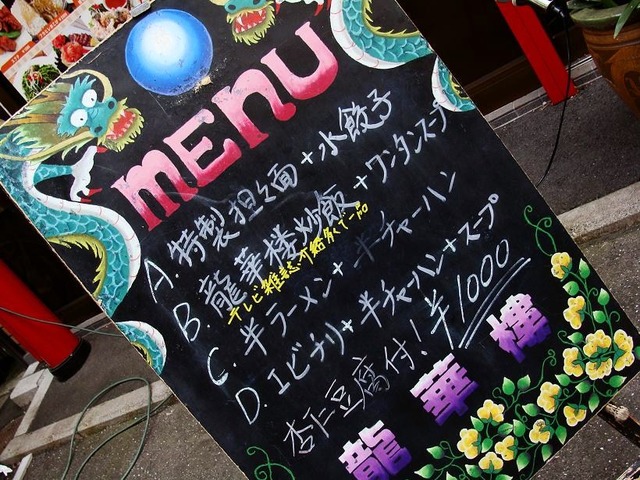 MENU
A. 特製担々面+水餃子
B. 龍華楼炒飯+ワンタンスープ
テレビ雑誌で紹介の一品
C. 半ラーメン+半チャーハン
D. エビチリ+半チャーハン+スープ
杏仁豆腐付! ¥1000
龍華楼